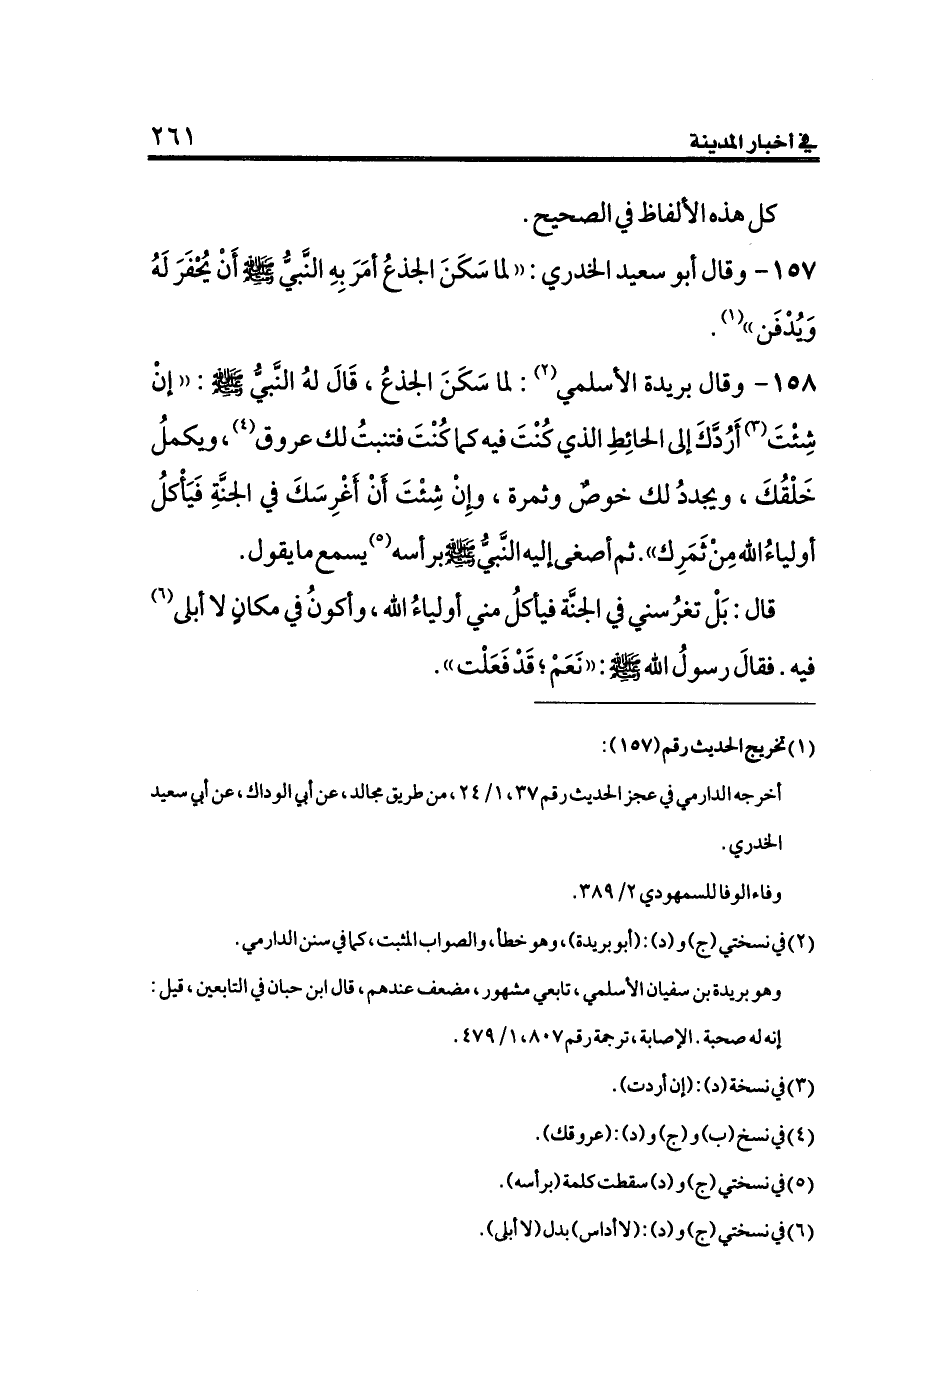 في أخبار المدينة ٢٦١
كل هذه الألفاظ في الصحيح .
١٥٧ - وقال أبو سعيد الخدري : «لما سَكَنَ الجذعُ أمَرَ بِهِ النَّبيُّ ﷺ أَنْ يُحْفَرَ لَهُ
وَيُدْفَن»(١) .
١٥٨ - وقال بريدة الأسلمي(٢) : لما سَكَنَ الجذعُ ، قَالَ لهُ النَّبيُّ ﷺ : «إنْ
شِئْتَ(٣) أَرُدَّكَ إلى الحائِطِ الذي كُنْتَ فيه كما كُنْتَ فتنبتُ لك عروق(٤) ، ويكملُ
خَلْقُكَ ، ويجددُ لك خوصٌ وثمرة ، وإنْ شِئْتَ أَنْ أَغْرِسَكَ في الجنَّةِ فَيَأْكلُ
أولياءُ الله مِنْ ثَمَرِك». ثم أصغى إليه النَّبيُّ ﷺ برأسه(٥) يسمع ما يقول.
قال : بَلْ تغرُسني في الجنَّة فيأكلُ مني أولياءُ الله ، وأكونُ في مكانٍ لا أبلى(٦)
فيه . فقالَ رسولُ الله ﷺ : «نَعَمْ ؛ قَدْ فَعَلْت» .
(١) تخريج الحديث رقم (١٥٧) :
أخرجه الدارمي في عجز الحديث رقم ٣٧، ١/ ٢٤ ، من طريق مجالد، عن أبي الوداك، عن أبي سعيد
الخدري .
وفاء الوفا للسمهودي ٢/ ٣٨٩.
(٢) في نسختي (ج) و (د) : (أبو بريدة)، وهو خطأ، والصواب المثبت، كما في سنن الدارمي.
وهو بريدة بن سفيان الأسلمي ، تابعي مشهور ، مضعف عندهم ، قال ابن حبان في التابعين ، قيل :
إنه له صحبة . الإصابة ، ترجمة رقم ٨٠٧، ١/ ٤٧٩ .
(٣) في نسخة (د) : (إن أردت).
(٤) في نسخ (ب) و (ج) و (د) : (عروقك).
(٥) في نسختي (ج) و (د) سقطت كلمة (برأسه).
(٦) في نسختي (ج) و (د) : (لا أداس) بدل (لا أبلى).